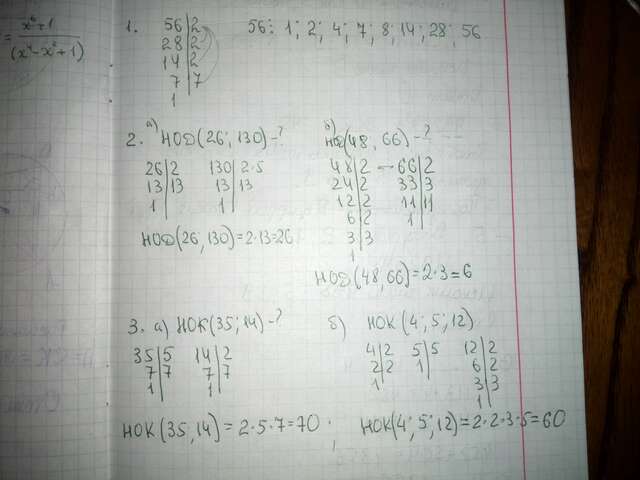 x⁶+1
= (x⁴-x²+1)
1. 56|2 56: 1; 2; 4; 7; 8; 14; 28; 56
28|2
14|2
7|7
1
2. а) НОД(26; 130)-? б) НОД(48, 66)-?
26|2 130|2·5 48|2 66|2
13|13 13|13 24|2 33|3
1| 1| 12|2 11|11
6|2 1|
3|3
1
НОД(26, 130)=2·13=26
НОД(48, 66)=2·3=6
3. а) НОК(35; 14)-? б) НОК (4; 5; 12)
35|5 14|2 4|2 5|5 12|2
7|7 7|7 2|2 1| 6|2
1| 1| 1| 3|3
1|
НОК (35; 14) = 2·5·7=70. НОК(4; 5; 12)=2·2·3·5=60